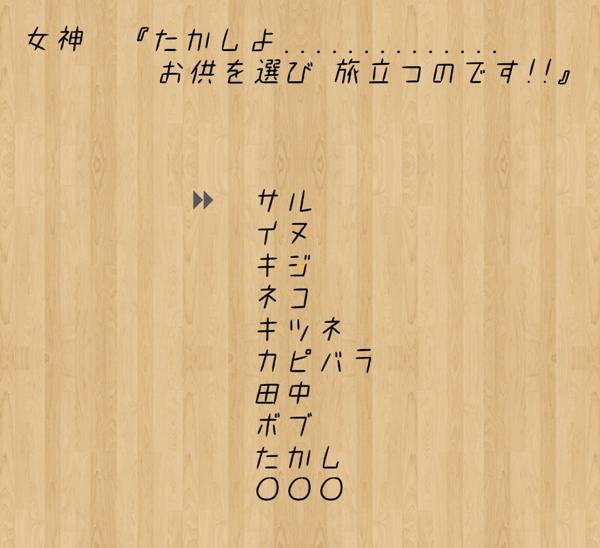 女神 『たかしよ..............
お供を選び 旅立つのです!!』
サル
イヌ
キジ
ネコ
キツネ
カピバラ
田中
ボブ
たかし
〇〇〇